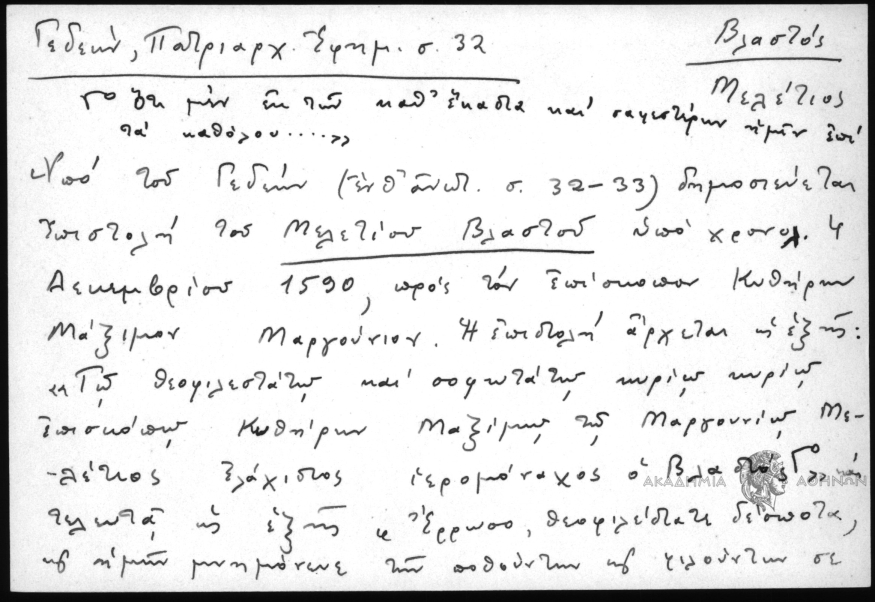 Γεδεών, Πατριαρχ. Ἐφημ. σ. 32
Βλαστός
Μελέτιος
Γο Ὅτι μὲν ἐκ τῶν καθ' ἕκαστα καὶ σαφεστέρων ἡμῖν ἐπὶ
τὰ καθόλου.....»
Ὑπό τοῦ Γεδεών (ἔνθ' ἀνωτ. σ. 32-33) δημοσιεύεται
ἐπιστολή τοῦ Μελετίου Βλαστοῦ ὑπό χρονολ. 4
Δεκεμβρίου 1590, πρός τόν Ἐπίσκοπον Κυθήρων
Μάξιμον Μαργούνιον. Ἡ ἐπιστολή ἄρχεται ὡς ἑξῆς:
«Τῷ θεοφιλεστάτῳ καί σοφωτάτῳ κυρίῳ κυρίῳ
Ἐπισκόπῳ Κυθήρων Μαξίμῳ τῷ Μαργουνίῳ Με-
-λέτιος ἐλάχιστος ἱερομόναχος ὁ Βλαστός Γο»
ΑΚΑΔΗΜΙΑ ΑΘΗΝΩΝ
τελευτᾷ ὡς ἑξῆς «Ἔρρωσο, θεοφιλέστατε δέσποτα,
καὶ ἡμῶν μνημόνευε τῶν ποθούντων καὶ φιλούντων σε